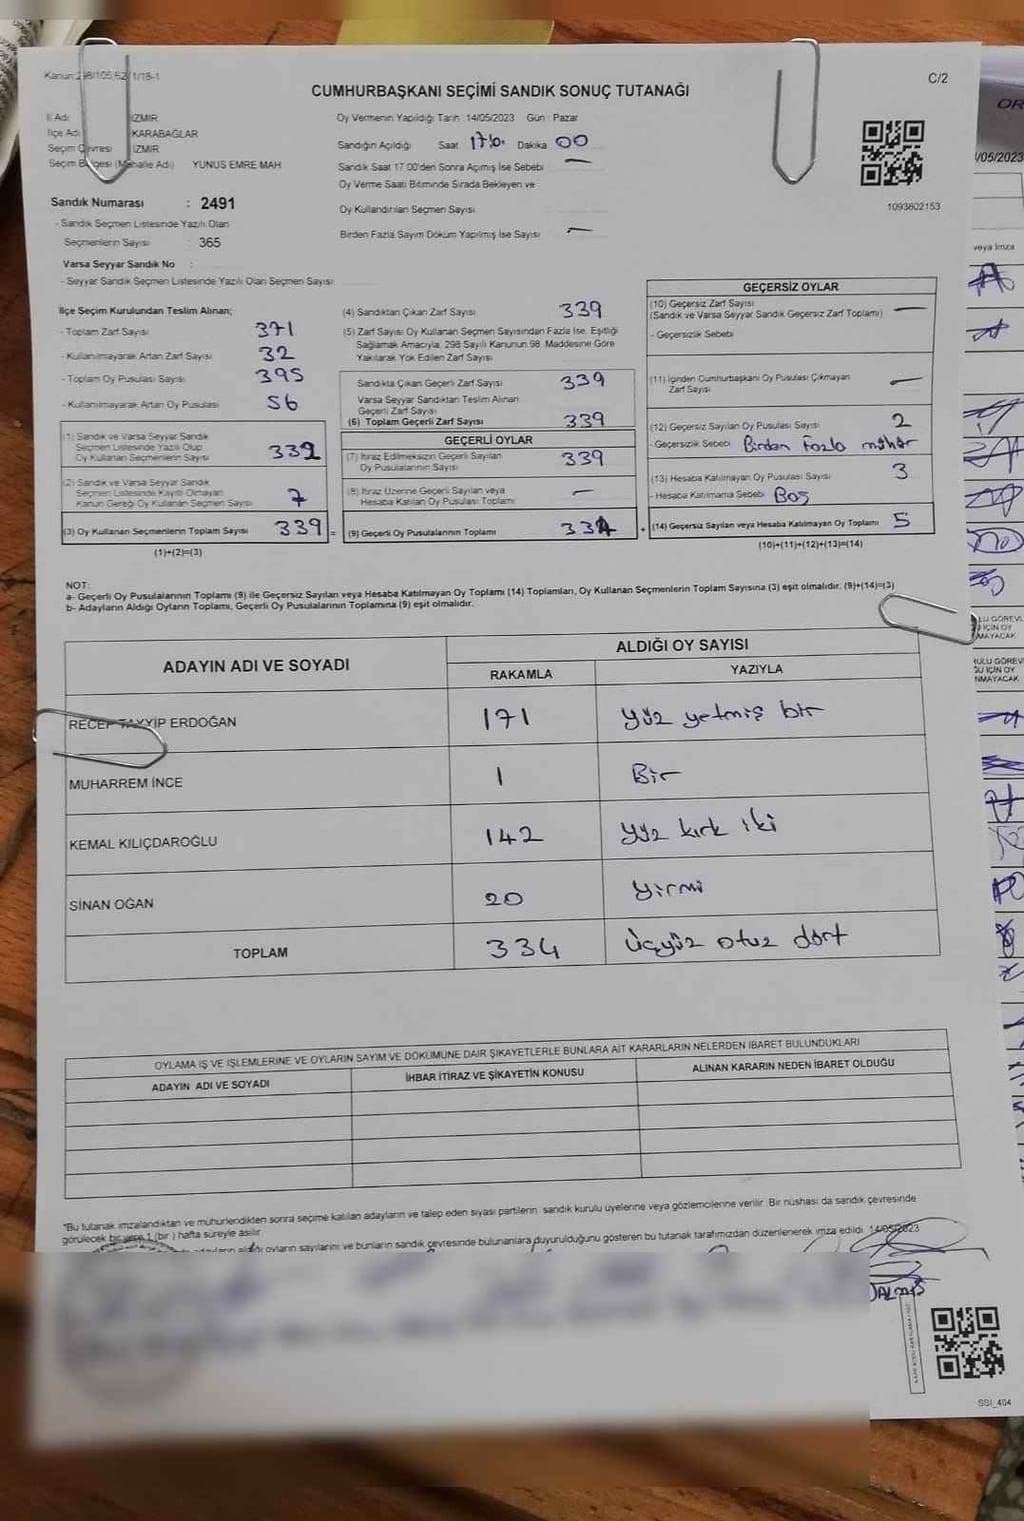 Kanun:298/105,62 1/18-1
C/2
CUMHURBAŞKANI SEÇİMİ SANDIK SONUÇ TUTANAĞI
İl Adı İZMİR
İlçe Adı KARABAĞLAR
Seçim Çevresi İZMİR
Seçim Bölgesi (Mahalle Adı) YUNUS EMRE MAH
Sandık Numarası : 2491
- Sandık Seçmen Listesinde Yazılı Olan
Seçmenlerin Sayısı : 365
Varsa Seyyar Sandık No :
- Seyyar Sandık Seçmen Listesinde Yazılı Olan Seçmen Sayısı
Oy Vermenin Yapıldığı Tarih 14/05/2023 Gün : Pazar
Sandığın Açıldığı Saat Dakika 00
Sandık Saat 17:00'den Sonra Açımış İse Sebebi —
Oy Verme Saati Bitiminde Sırada Bekleyen ve
Oy Kullandırılan Seçmen Sayısı
Birden Fazla Sayım Döküm Yapılmış İse Sayısı —
1093802153
İlçe Seçim Kurulundan Teslim Alınan;
- Toplam Zarf Sayısı 371
- Kullanılmayarak Artan Zarf Sayısı 32
- Toplam Oy Pusulası Sayısı 395
- Kullanılmayarak Artan Oy Pusulası 56
(1) Sandık ve Varsa Seyyar Sandık
Seçmen Listesinde Yazılı Olup
Oy Kullanan Seçmenlerin Sayısı 332
(2) Sandık ve Varsa Seyyar Sandık
Seçmen Listesinde Kayıtlı Olmayan
Kanun Gereği Oy Kullanan Seçmen Sayısı 7
(3) Oy Kullanan Seçmenlerin Toplam Sayısı 339 =
(1)+(2)=(3)
(4) Sandıktan Çıkan Zarf Sayısı 339
(5) Zarf Sayısı Oy Kullanan Seçmen Sayısından Fazla İse, Eşitliği
Sağlamak Amacıyla, 298 Sayılı Kanunun 98. Maddesine Göre
Yakılarak Yok Edilen Zarf Sayısı
Sandıkta Çıkan Geçerli Zarf Sayısı 339
Varsa Seyyar Sandıktan Teslim Alınan
Geçerli Zarf Sayısı
(6) Toplam Geçerli Zarf Sayısı 339
GEÇERLİ OYLAR
(7) İtiraz Edilmeksizin Geçerli Sayılan
Oy Pusulalarının Sayısı 339
(8) İtiraz Üzerine Geçerli Sayılan veya
Hesaba Katılan Oy Pusulası Toplamı —
(9) Geçerli Oy Pusulalarının Toplamı 334 +
GEÇERSİZ OYLAR
(10) Geçersiz Zarf Sayısı
(Sandık ve Varsa Seyyar Sandık Geçersiz Zarf Toplamı) —
- Geçersizlik Sebebi
(11) İçinden Cumhurbaşkanı Oy Pusulası Çıkmayan
Zarf Sayısı —
(12) Geçersiz Sayılan Oy Pusulası Sayısı 2
- Geçersizlik Sebebi Birden Fazla mühür
(13) Hesaba Katılmayan Oy Pusulası Sayısı 3
- Hesaba Katılmama Sebebi Boş
(14) Geçersiz Sayılan veya Hesaba Katılmayan Oy Toplamı 5
(10)+(11)+(12)+(13)=(14)
NOT:
a- Geçerli Oy Pusulası Toplamı (9) ile Geçersiz Sayılan veya Hesaba Katılmayan Oy Toplamı (14) Toplamları, Oy Kullanan Seçmenlerin Toplam Sayısına (3) eşit olmalıdır. (9)+(14)=(3)
b- Adayların Aldığı Oyların Toplamı, Geçerli Oy Pusulalarının Toplamına (9) eşit olmalıdır.
ADAYIN ADI VE SOYADI ALDIĞI OY SAYISI
RAKAMLA YAZIYLA
RECEP TAYYİP ERDOĞAN 171 yüz yetmiş bir
MUHARREM İNCE 1 Bir
KEMAL KILIÇDAROĞLU 142 yüz kırk iki
SİNAN OĞAN 20 yirmi
TOPLAM 334 üçyüz otuz dört
OYLAMA İŞ VE İŞLEMLERİNE VE OYLARIN SAYIM VE DÖKÜMÜNE DAİR ŞİKAYETLERLE BUNLARA AİT KARARLARIN NELERDEN İBARET BULUNDUKLARI
ADAYIN ADI VE SOYADI İHBAR İTİRAZ VE ŞİKAYETİN KONUSU ALINAN KARARIN NEDEN İBARET OLDUĞU
"Bu tutanak imzalandıktan ve mühürlendikten sonra seçime katılan adayların ve talep eden siyasi partilerin sandık kurulu üyelerine veya gözlemcilerine verilir. Bir nüshası da sandık çevresinde
görülecek bir yere 1 (bir) hafta süreyle asılır.
aldığı oyların sayılarını ve bunların sandık çevresinde bulunanlara duyurulduğunu gösteren bu tutanak tarafımızdan düzenlenerek imza edildi. 14/05/2023
SSI_404
OR
/05/2023
veya İmza
LU GÖREVL
İÇİN OY
MAYACAK
RULU GÖREV
SU İÇİN OY
NMAYACAK